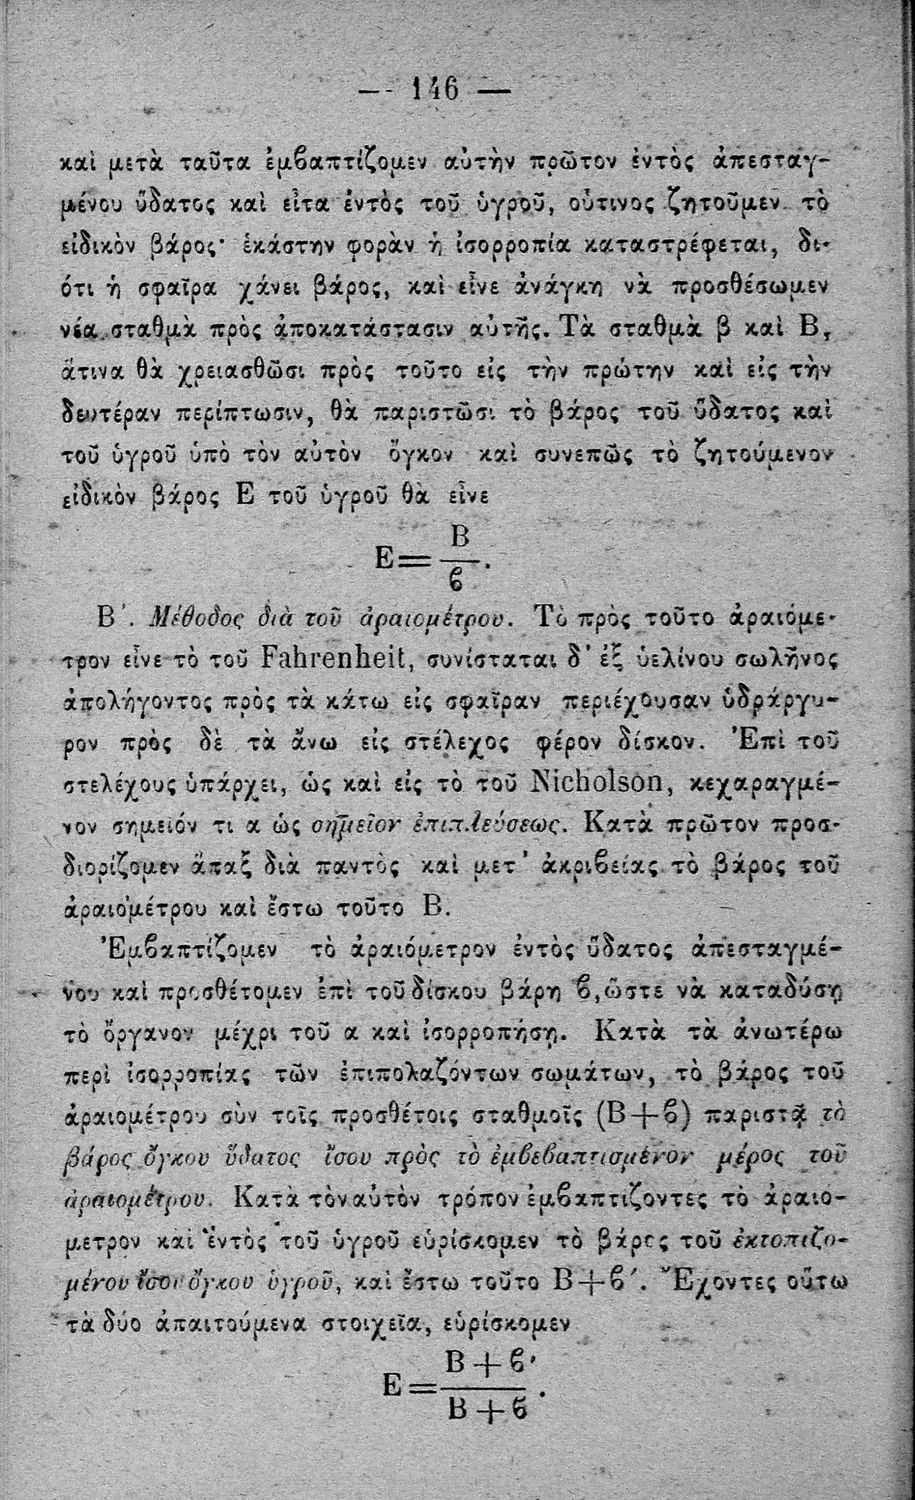 — 146 —
καὶ μετὰ ταῦτα ἐμϐαπτίζομεν αὐτὴν πρῶτον ἐντὸς ἀπεσταγ-
μένου ὕδατος καὶ εἶτα ἐντὸς τοῦ ὑγροῦ, οὑτινος ζητοῦμεν τὸ
εἰδικὸν βάρος· ἑκάστην φορὰν ἡ ἰσορροπία καταστρέφεται, δι-
ότι ἡ σφαῖρα χάνει βάρος, καὶ εἶνε ἀνάγκη νὰ προσθέσωμεν
νέα σταθμὰ πρὸς ἀποκατάστασιν αὐτῆς. Τὰ σταθμὰ β καὶ Β,
ἅτινα θὰ χρειασθῶσι πρὸς τοῦτο εἰς τὴν πρώτην καὶ εἰς τὴν
δευτέραν περίπτωσιν, θὰ παριστῶσι τὸ βάρος τοῦ ὕδατος καὶ
τοῦ ὑγροῦ ὑπὸ τὸν αὐτὸν ὄγκον καὶ συνεπῶς τὸ ζητούμενον
εἰδικὸν βάρος Ε τοῦ ὑγροῦ θὰ εἶνε
Ε = Β / ϐ .
Β΄. Μέθοδος διὰ τοῦ ἀραιομέτρου. Τὸ πρὸς τοῦτο ἀραιόμε-
τρον εἶνε τὸ τοῦ Fahrenheit, συνίσταται δ᾽ ἐξ ὑελίνου σωλῆνος
ἀπολήγοντος πρὸς τὰ κάτω εἰς σφαῖραν περιέχουσαν ὑδράργυ-
ρον πρὸς δὲ τὰ ἄνω εἰς στέλεχος φέρον δίσκον. Ἐπὶ τοῦ
στελέχους ὑπάρχει, ὡς καὶ εἰς τὸ τοῦ Nicholson, κεχαραγμέ-
νον σημεῖόν τι α ὡς σημεῖον ἐπιπλεύσεως. Κατὰ πρῶτον προσ-
διορίζομεν ἅπαξ διὰ παντὸς καὶ μετ᾽ ἀκριϐείας τὸ βάρος τοῦ
ἀραιομέτρου καὶ ἔστω τοῦτο Β.
Ἐμϐαπτίζομεν τὸ ἀραιόμετρον ἐντὸς ὕδατος ἀπεσταγμέ-
νου καὶ προσθέτομεν ἐπὶ τοῦ δίσκου βάρη ϐ, ὥστε νὰ καταδύσῃ
τὸ ὄργανον μέχρι τοῦ α καὶ ἰσορροπήσῃ. Κατὰ τὰ ἀνωτέρω
περὶ ἰσορροπίας τῶν ἐπιπολαζόντων σωμάτων, τὸ βάρος τοῦ
ἀραιομέτρου σὺν τοῖς προσθέτοις σταθμοῖς (Β+ϐ) παριστᾷ τὸ
βάρος ὄγκου ὕδατος ἴσου πρὸς τὸ ἐμϐεϐαπτισμένον μέρος τοῦ
ἀραιομέτρου. Κατὰ τὸν αὐτὸν τρόπον ἐμϐαπτίζοντες τὸ ἀραιό-
μετρον καὶ ἐντὸς τοῦ ὑγροῦ εὑρίσκομεν τὸ βάρος τοῦ ἐκτοπιζο-
μένου ἴσου ὄγκου ὑγροῦ, καὶ ἔστω τοῦτο Β+ϐ΄. Ἔχοντες οὕτω
τὰ δύο ἀπαιτούμενα στοιχεῖα, εὑρίσκομεν
Ε = Β+ϐ΄ / Β+ϐ .